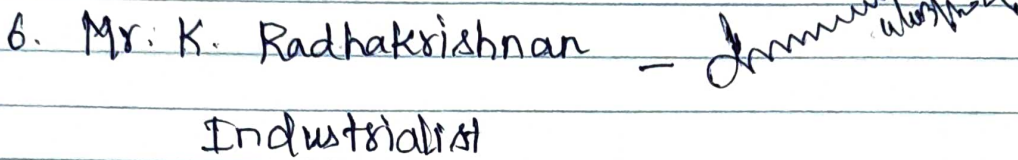 6. Mr. K. Radhakrishnan -
Industrialist